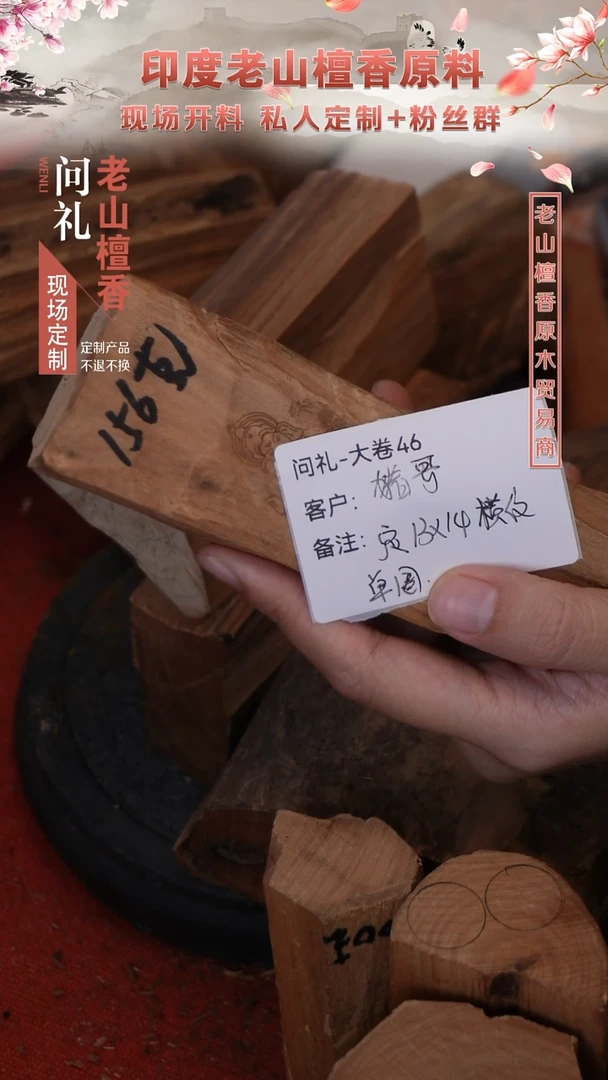 印度老山檀香原料
现场开料 私人定制+粉丝群
老山檀香
问礼
WENLI
现场定制
定制产品
不退不换
老山檀香原木贸易商
156克
问礼-大卷46
客户: 哥
备注: 定13X14横纹
单圈.